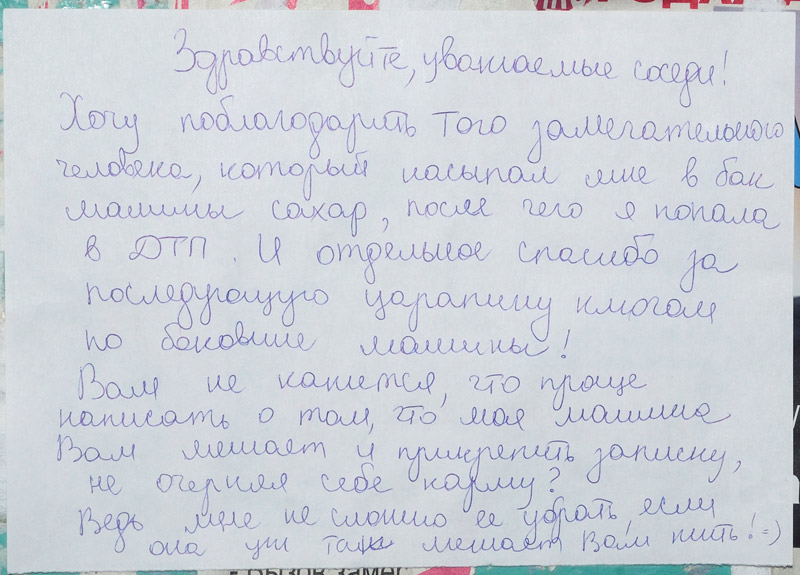 Здравствуйте, уважаемые соседи!
Хочу поблагодарить того замечательного
человека, который насыпал мне в бак
машины сахар, после чего я попала
в ДТП. И отдельное спасибо за
последующую царапину
по боковине машины!
Вам не кажется, что проще
написать о том, что моя машина
Вам мешает и прикрепить записку,
не очерняя себе карму?
Ведь мне не сложно ее убрать, если
она уж так мешает Вам жить! =)